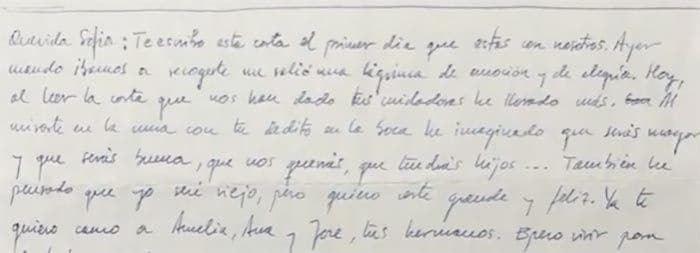 Querida Sofía: Te escribo esta carta el primer día que estás con nosotros. Ayer
cuando íbamos a recogerte me salió una lágrima de emoción y de alegría. Hoy,
al leer la carta que nos han dado tus cuidadoras he llorado más. Al
mirarte en la cuna con tu dedito en la boca he imaginado que serás mayor
y que serás buena, que nos querrás, que tendrás hijos... También he
pensado que yo seré viejo, pero quiero verte grande y feliz. Ya te
quiero como a Amelia, Ana y José, tus hermanos. Espero vivir para